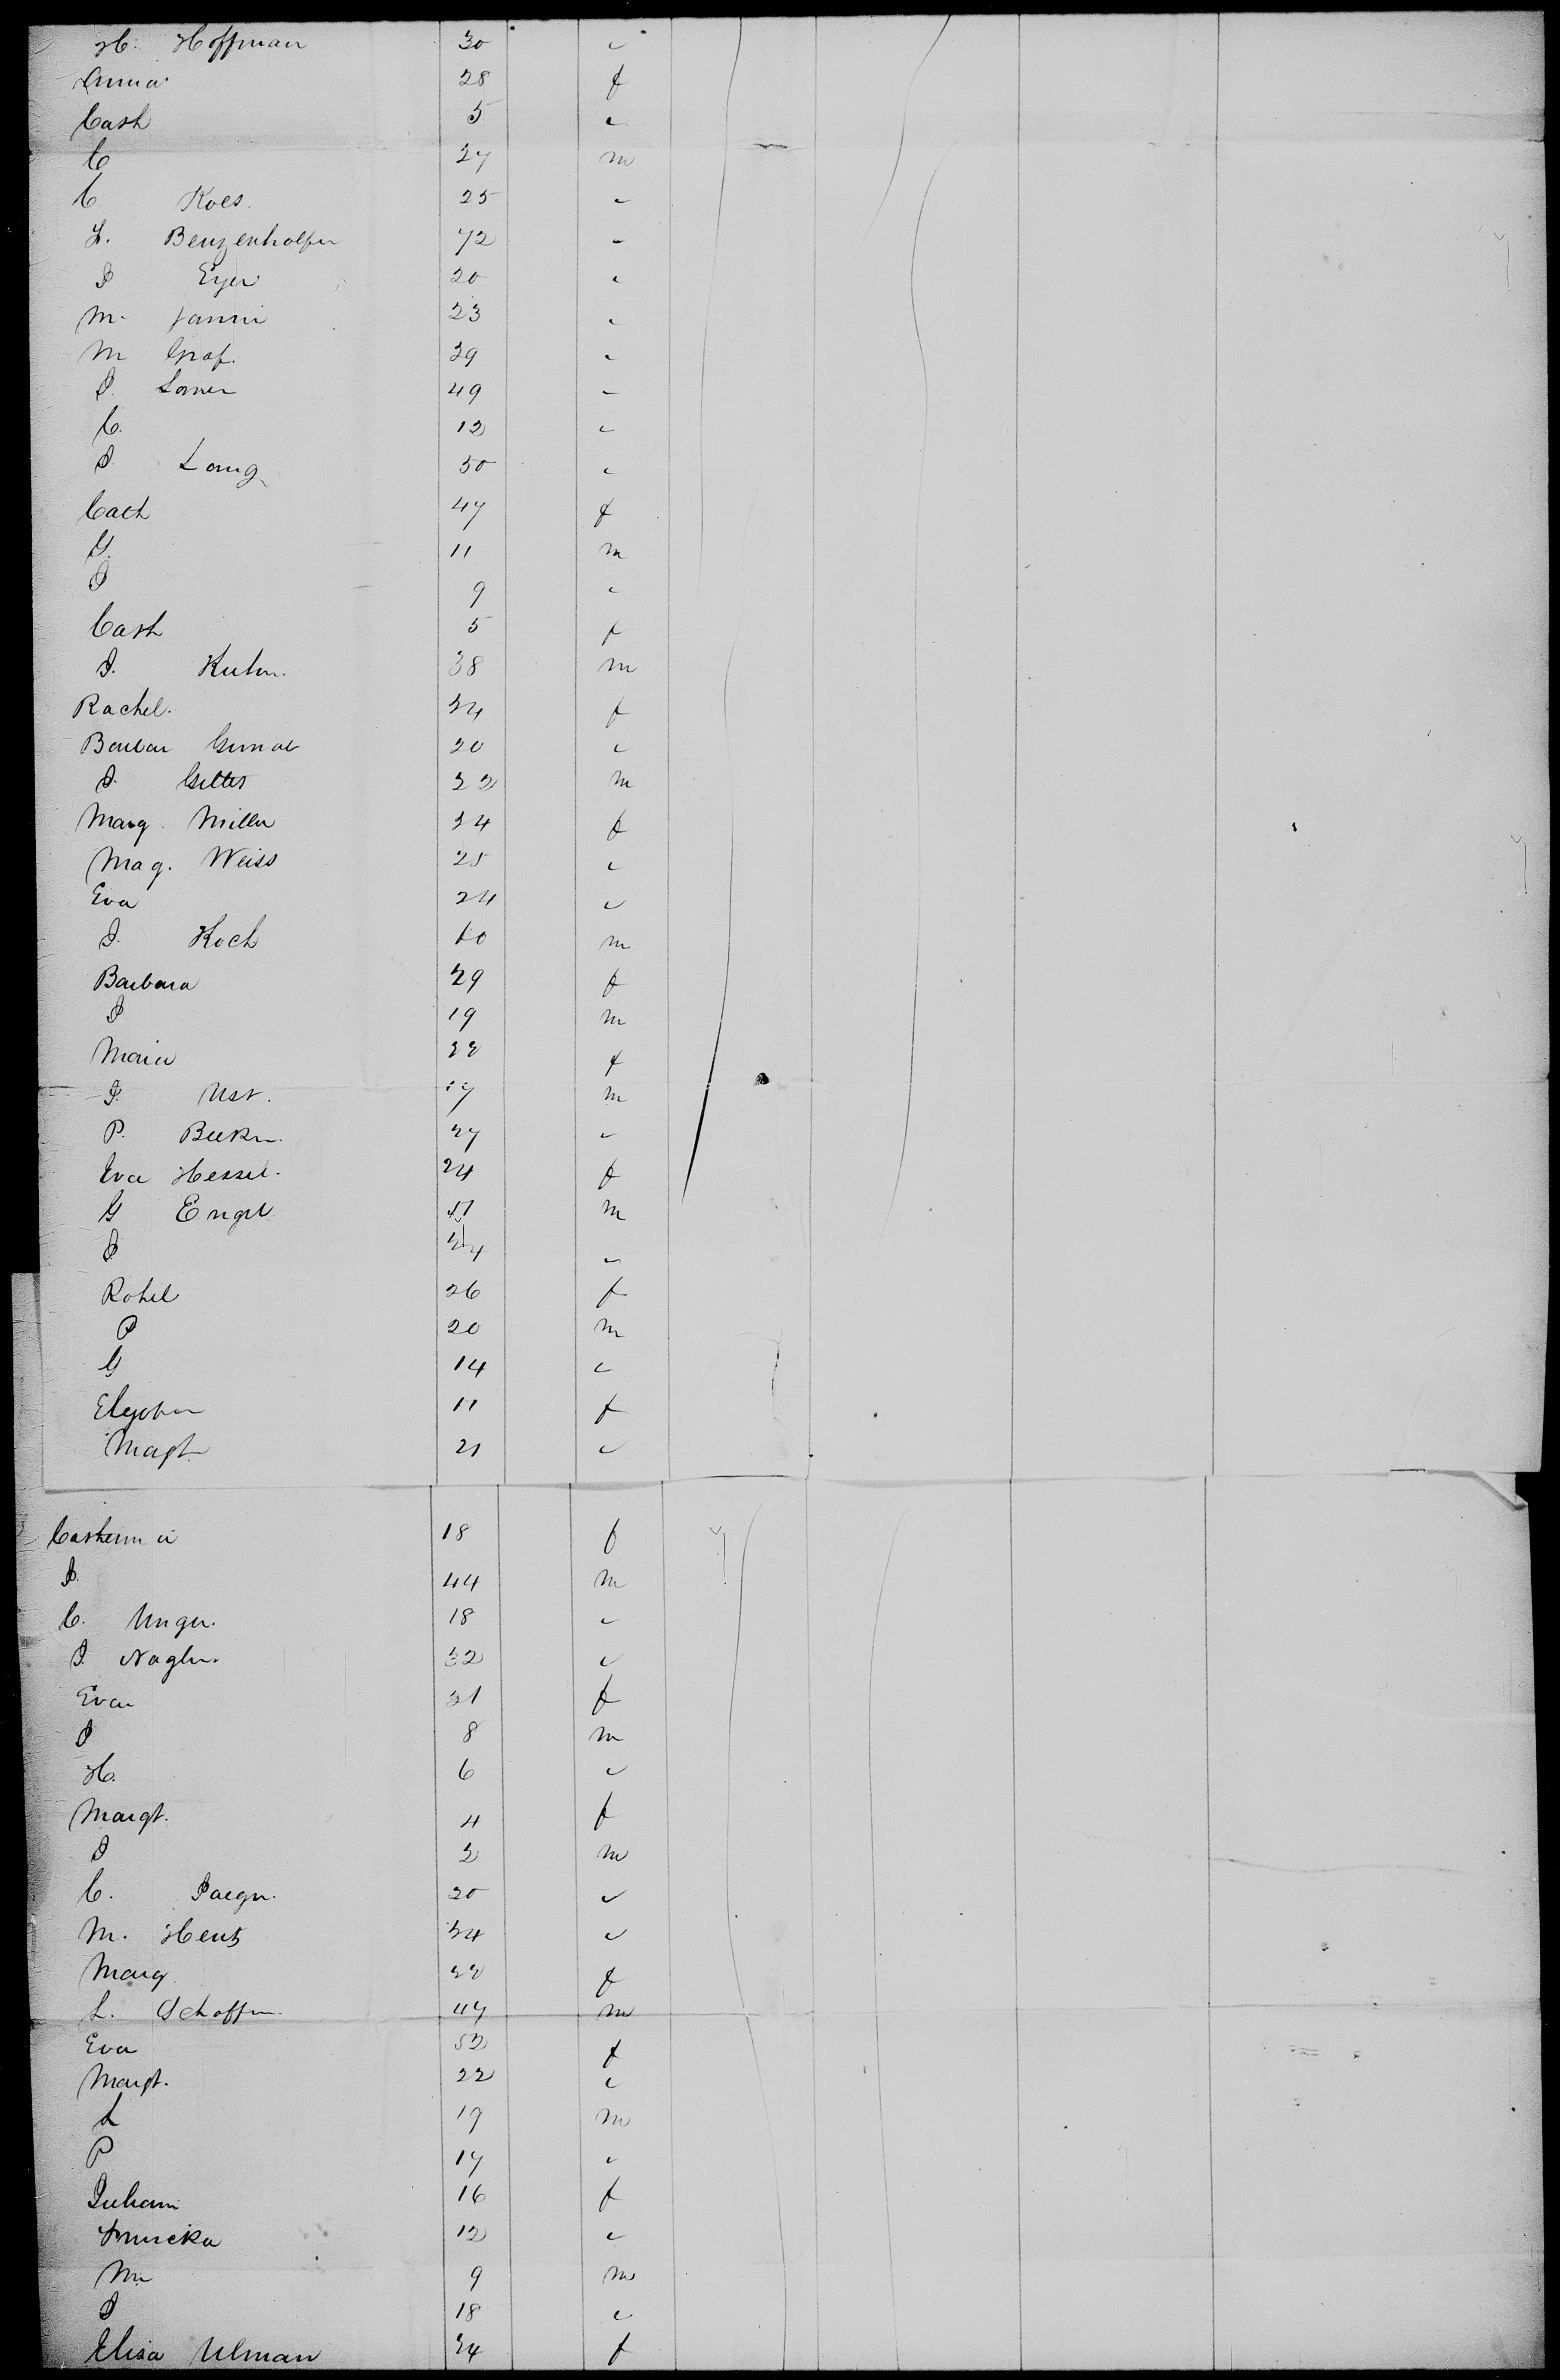 H. Hoffman 30 "
Anna 28 f
Cath 5 "
C 27 m
C Koes. 25 "
L. Benzenhoffer 72 "
J Eyer 20 "
M. 23 "
M Graf. 29 "
J. 49 "
C. 12 "
J. Lang 50 "
Cath 47 f
G. 11 m
J 9 "
Cath 5 f
J. Kuhn. 38 m
Rachel. 34 f
20 "
J. 22 m
Marg. Miller 24 f
Mag. Weiss 25 "
Eva 24 "
J. Koch m
Barbara 29 f
J 19 m
Maria 22 f
J. Ust. 17 m
P. 27 "
Eva Hessel. 24 f
G Engel m
J "
Rohel 26 f
P 20 m
G 14 "
11 f
Magt. 21 "
18 f
J. 44 m
C. Unger. 18 "
J. Nagler. 32 "
Eva 31 f
J 8 m
H. 6 "
Margt. 4 f
J 2 m
C. Jaeger. 20 "
M. Hentz 34 "
Marg 22 f
L. 47 m
Eva 52 f
Margt. 22 "
L 19 m
P 17 "
16 f
12 "
M 9 m
J 18 "
Elisa Ulman 24 f